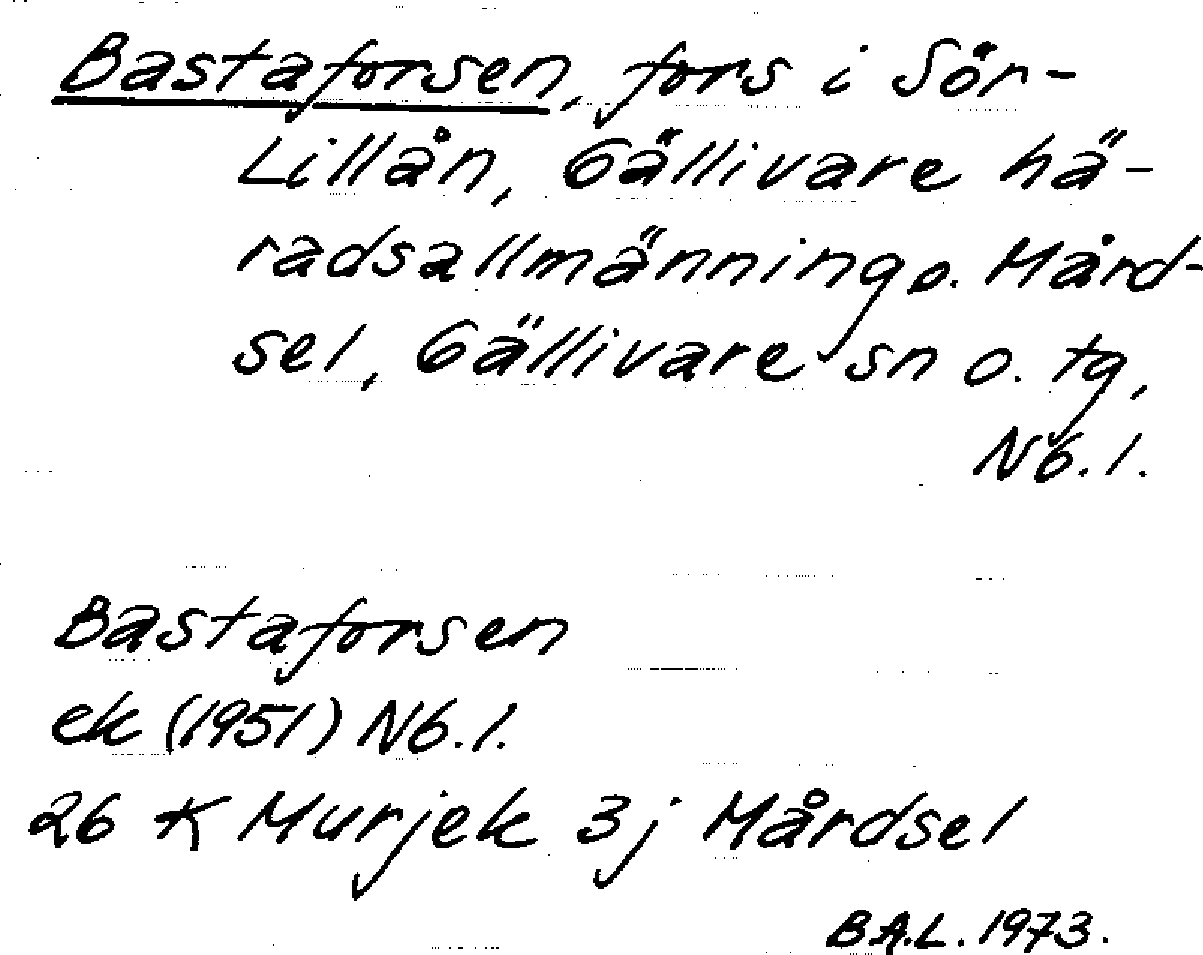 Bastaforsen, fors i Sör-
Lillån, Gällivare hä-
radsallmänning o. Mård-
sel, Gällivare sn o. tg,
Nb. l.
Bastaforsen
ek (1951) Nb. l.
26 K Murjek 3j Mårdsel
B.A.L. 1973.